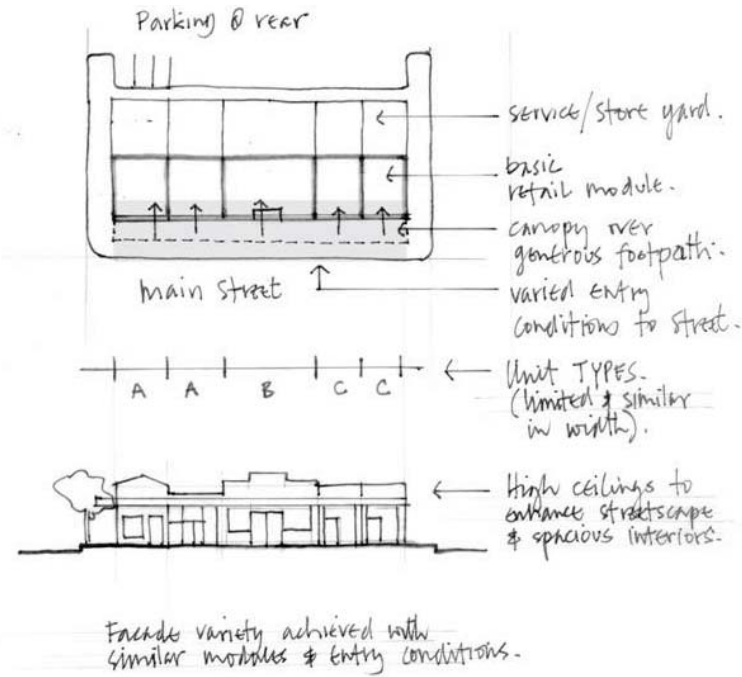 Parking @ rear
service/store yard.
basic
retail module.
canopy over
generous footpath.
main street
varied entry
conditions to street.
A A B C C
Unit TYPES.
(limited & similar
in width).
High ceilings to
enhance streetscape
& spacious interiors.
Facade variety achieved with
similar modules & entry conditions.